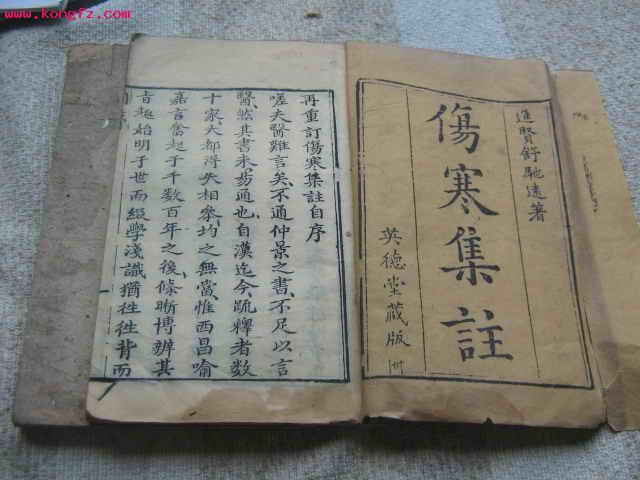 www.kongfz.com
進賢舒馳遠著
傷寒集註
英德堂藏版
再重訂傷寒集註自序
嗟夫醫難言矣不通仲景之書不足以言
醫然其書未易通也自漢迄今疏釋者數
十家大都得失相叅均之無當惟西昌喻
嘉言奮起于千數百年之後條晰博辨其
旨趣始明于世而綴學淺識猶徃徃背而